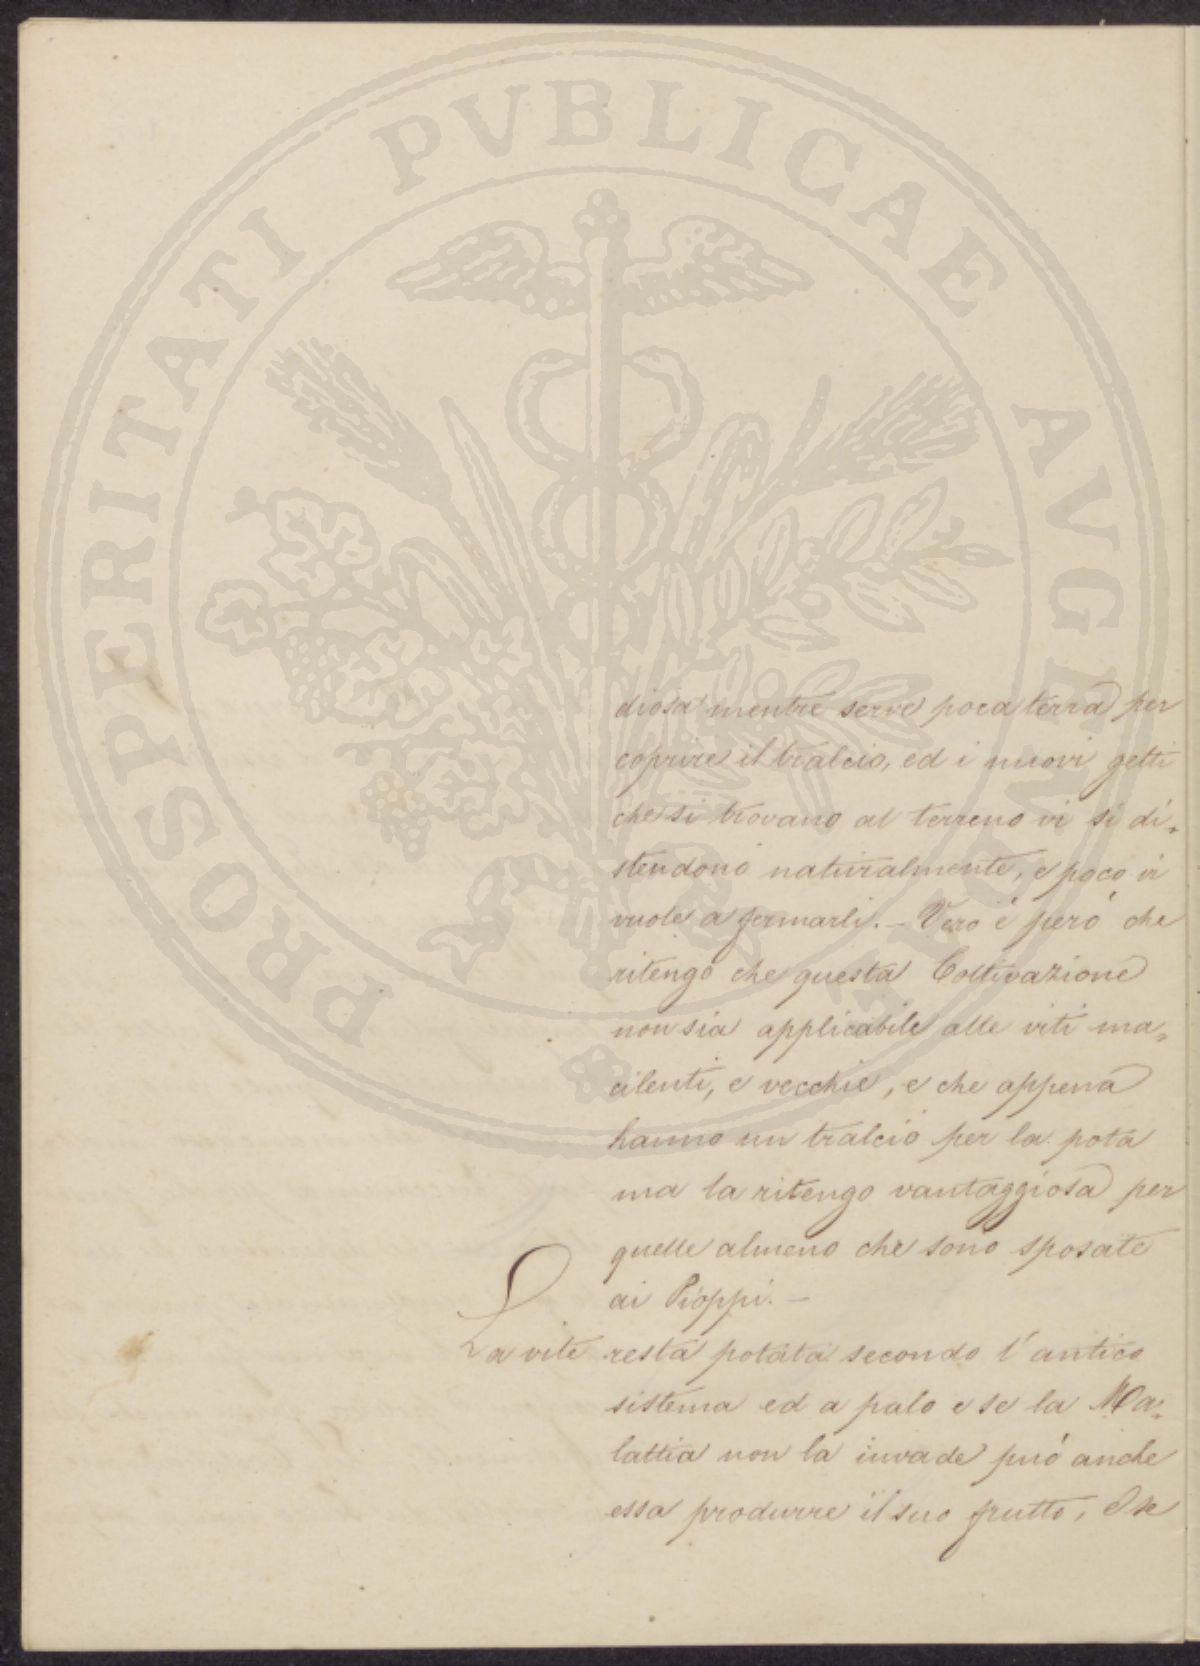 PROSPERITATI PVBLICAE AVGENDAE
diosa mentre serve poca terra per
coprire il tralcio, ed i nuovi getti
che si trovano al terreno vi si di=
stendono naturalmente, e poco vi
vuole a fermarli. – Vero è però che
ritengo che questa Coltivazione
non sia applicabile alle viti ma=
cilenti, e vecchie, e che appena
hanno un tralcio per la pota
ma la ritengo vantaggiosa per
quelle almeno che sono sposate
ai Pioppi. –
La vite resta potata secondo l'antico
sistema ed a palo e se la Ma=
lattia non la invade può anche
essa produrre il suo frutto, E se